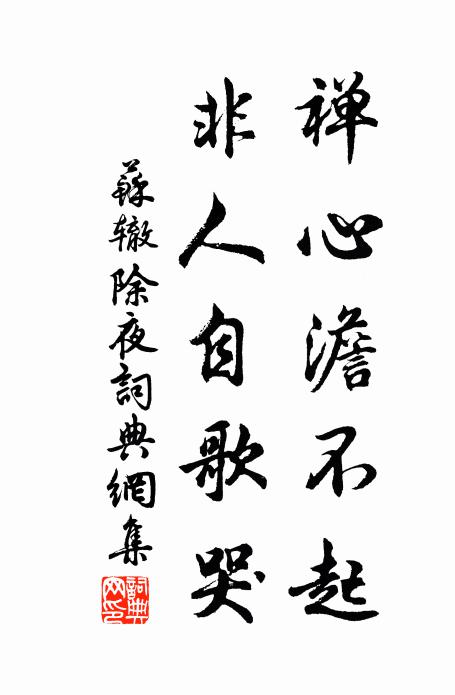 禅心澹不起
非人自歌哭
蘇轍除夜詞典網集
詞典
网印